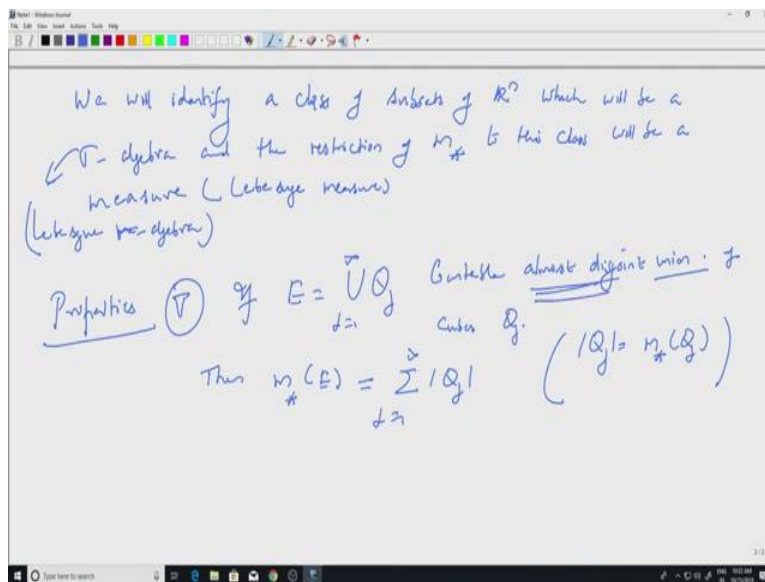 Note1 - Windows Journal
File Edit View Insert Actions Tools Help
We will identify a class of subsets of ℝⁿ which will be a
σ-algebra and the restriction of m_* to this class will be a
measure (Lebesgue measure)
(Lebesgue σ-algebra)
Properties ⑤ If E = ∪_{j=1}^∞ Q_j Countable almost disjoint union of
cubes Q_j.
Then m_*(E) = Σ_{j=1}^∞ |Q_j| (|Q_j| = m_*(Q_j))
Type here to search
ENG